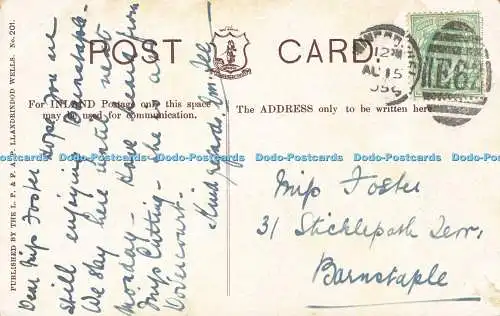 POST CARD
PUBLISHED BY THE L. P. & F. A. P. LLANDRINDOD WELLS. No. 201.
For INLAND Postage only this space
may be used for communication.
The ADDRESS only to be written here.
12
AU 15
E67
Dear Miss Foster hope you are
still enjoying Barnstaple.
We stay here until next
Monday. Have seen
Miss Cutting - she is a
Dovercourt.
Kind regards,
Miss Foster
31 Sticklepath Terr,
Barnstaple
Dodo-Postcards Dodo-Postcards Dodo-Postcards Dodo-Postcards Dodo-Postcards